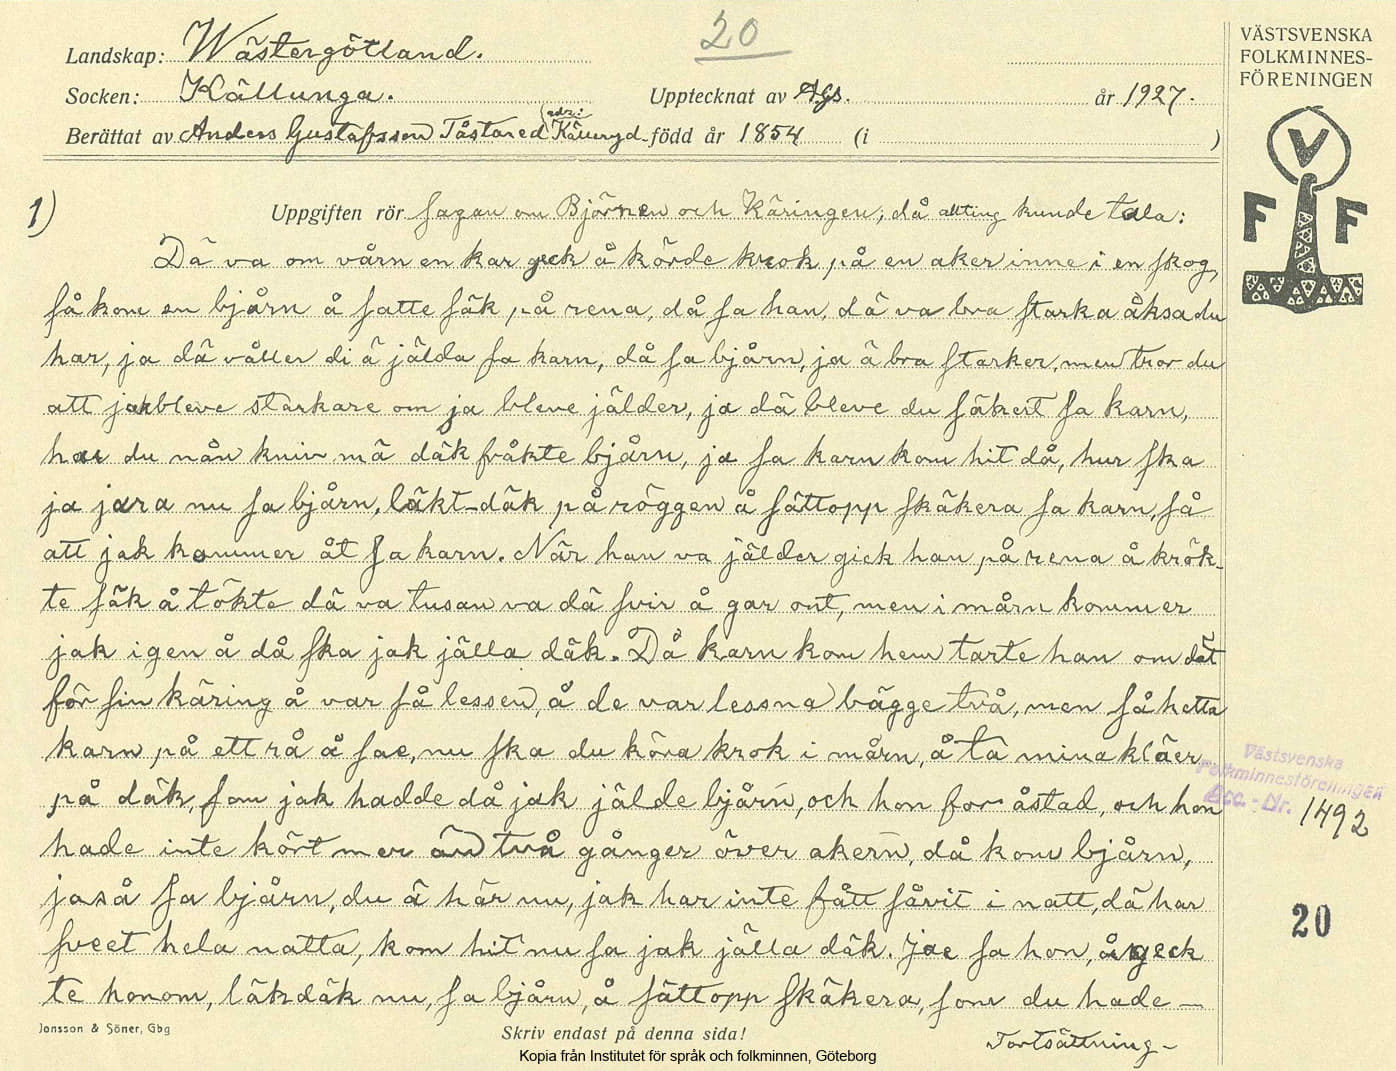 20
Landskap: Wästergötland.
Socken: Källunga.
Upptecknat av AGs. år 1927.
Berättat av Anders Gustafsson Tåstared (adr: Källeryd - född år 1854 (i )
VÄSTSVENSKA
FOLKMINNES-
FÖRENINGEN
V
F F
1)
Uppgiften rör sagan om Björnen och Käringen, då allting kunde tala:
Dä va om vårn en kar geck å körde krok på en aker inne i en skog,
så kom en bjårn å satte säk på rena, då sa han, dä va bra starka åksa du
har, ja dä våller di ä jälda sa karn, då sa bjårn, ja ä bra starker, men tror du
att jak bleve starkare om ja bleve jälder, ja dä bleve du säkert sa karn,
har du nån kniv mä däk fråkte bjårn, ja sa karn kom hit då, hur ska
ja jara nu sa bjårn, läkt-däk på röggen å sättopp skäkera sa karn, så
att jak kommer åt sa karn. När han va jälder gick han på rena å krök-
te säk å tökte dä va tusan va dä svir å gar ont, men i mårn kommer
jak igen å då ska jak jälla däk. Då karn kom hem tarte han om dät
för sin käring å var så lessen, å de var lessna bägge två, men så hetta
karn på ett rå å sae, nu ska du köra krok i mårn, å ta mina kläer
på däk, som jak hadde då jak jälde bjårn, och hon for åstad, och hon
hade inte kört mer än två gånger över akern, då kom bjårn,
jaså sa bjårn, du ä här nu, jak har inte fått såvit i natt, dä har
sveet hela natta, kom hit nu sa jak jälla däk. Jae sa hon, å geck
te honom, läkdäk nu, sa bjårn, å sättopp skäkera, som du hade —
Västsvenska
Folkminnesföreningen
Acc.-Nr. 1492
20
Jonsson & Söner, Gbg
Skriv endast på denna sida!
Fortsättning -
Kopia från Institutet för språk och folkminnen, Göteborg